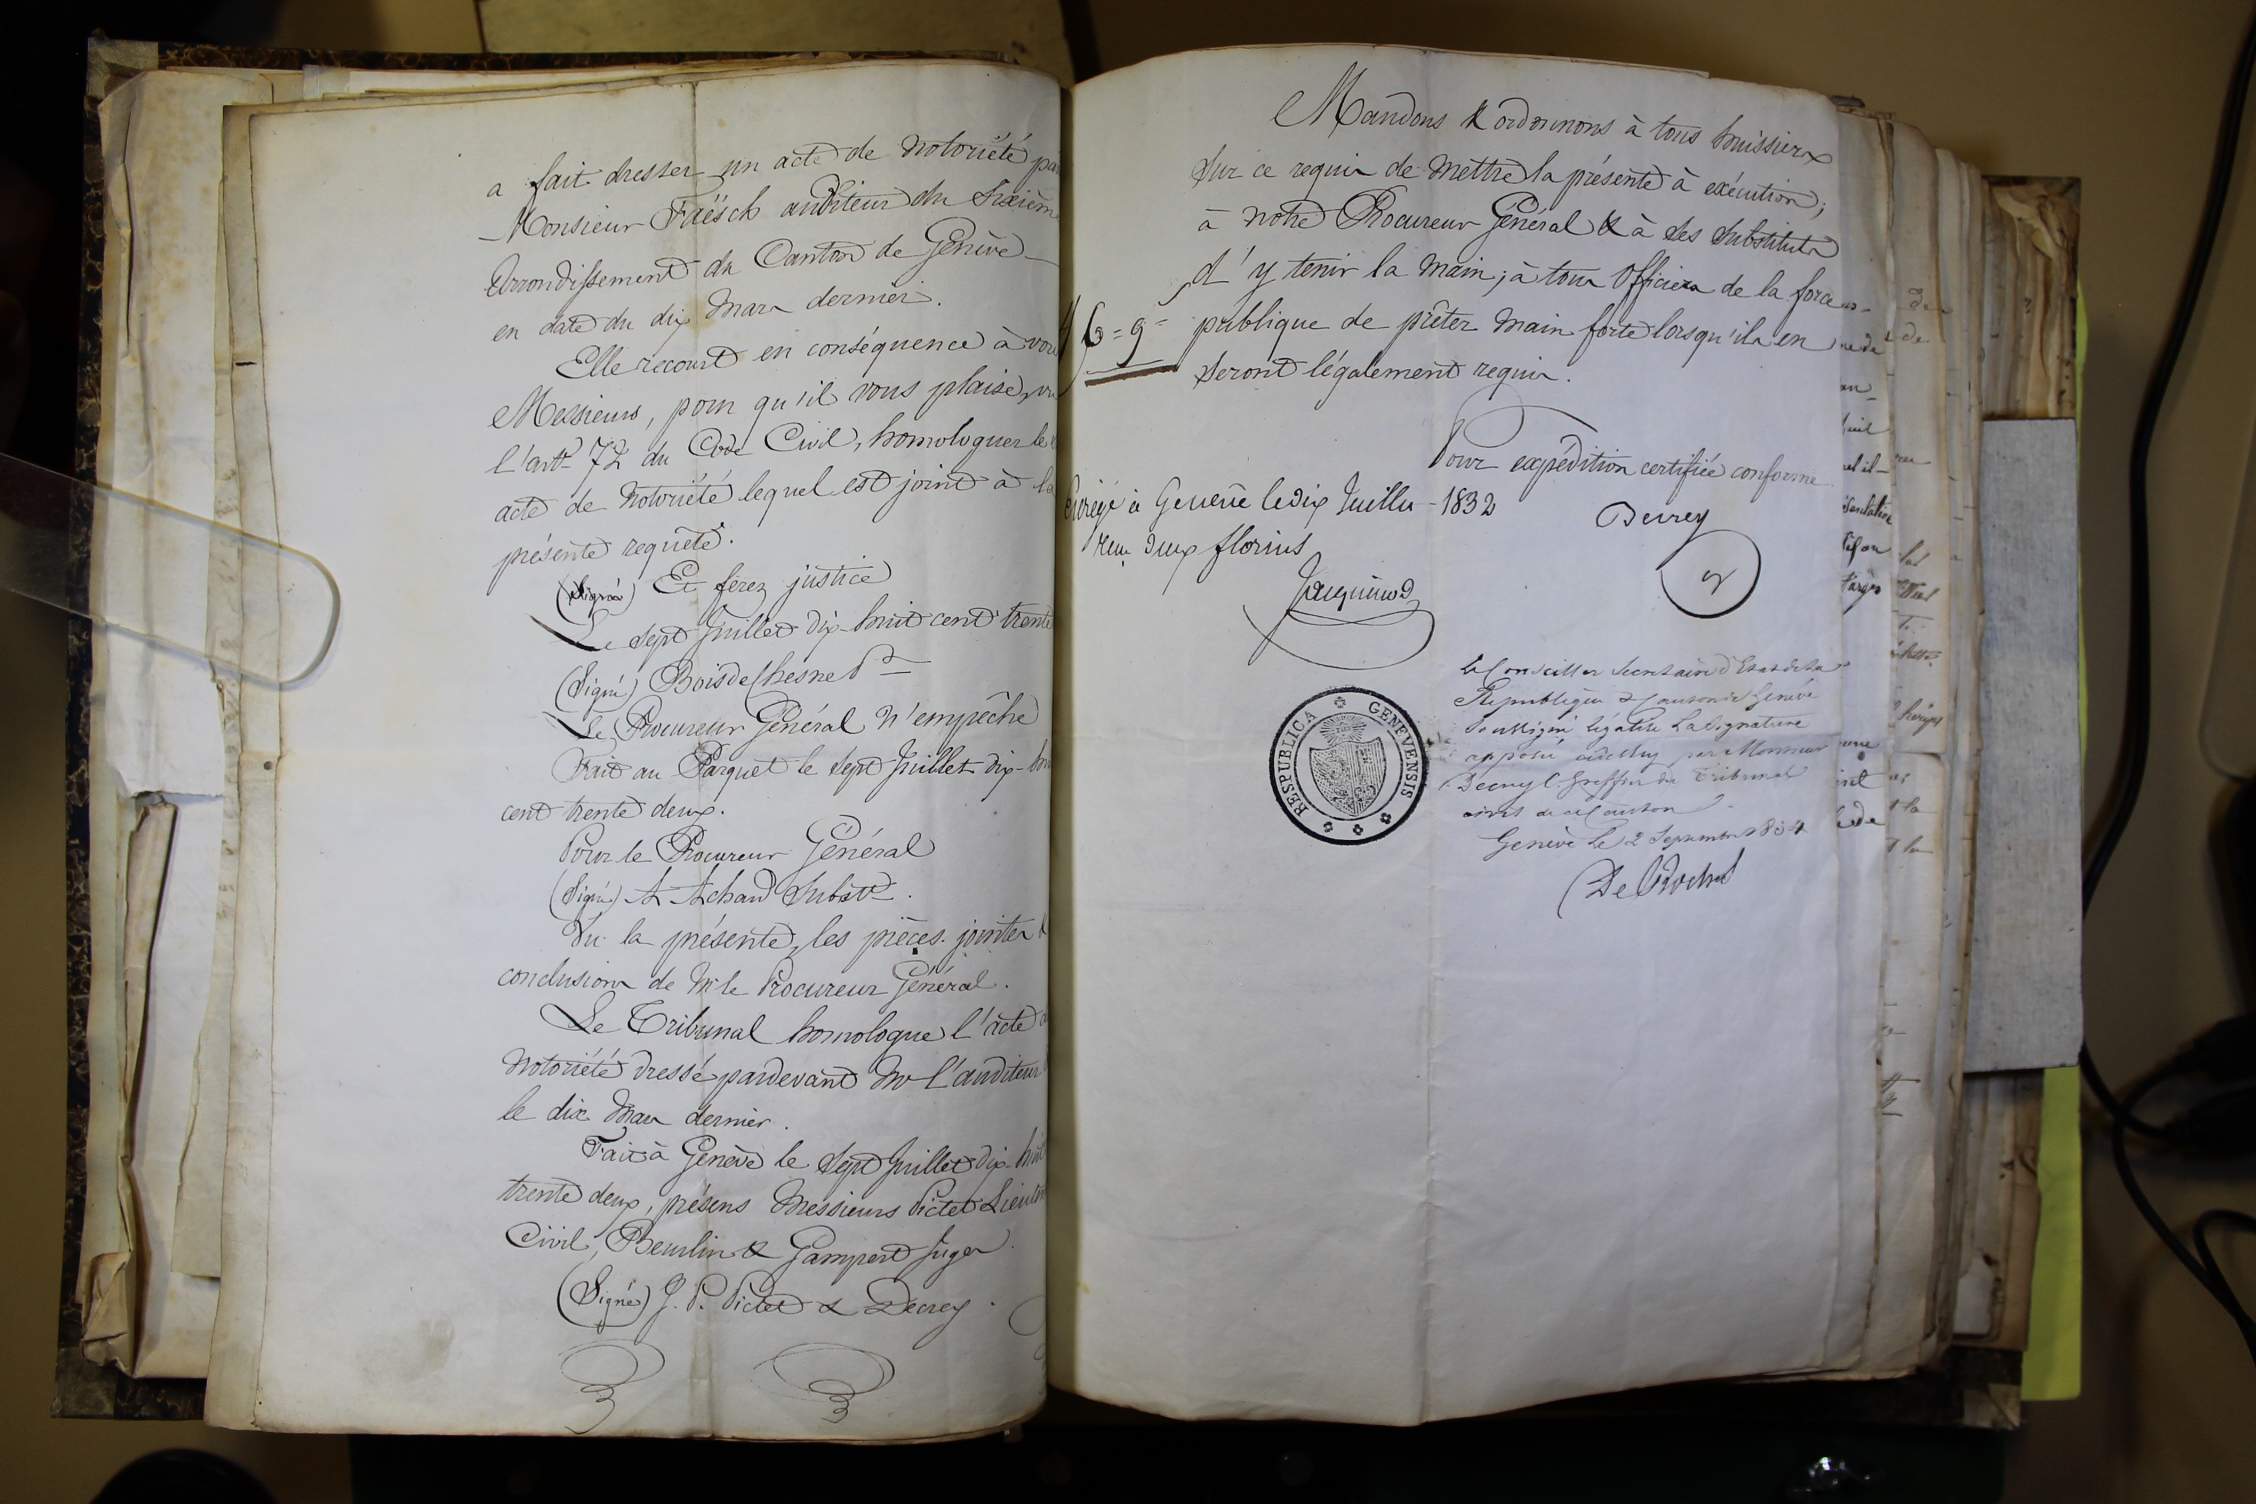 a fait dresser un acte de Notoriété par
Monsieur Faësch auditeur du Sixième
Arrondissement du Canton de Genève
en date du dix Mars dernier.
Elle recourt en conséquence à vous
Messieurs, pour qu'il vous plaise, vu
l'artle 72 du Code Civil, homologuer le
acte de Notoriété lequel est joint à la
présente requête.
(Signé) Et ferez justice
Le sept Juillet dix-huit cent trente
(Signé) BoisdeChesne
Le Procureur Général N'empêche
Fait au Parquet le sept Juillet dix-huit
cent trente deux.
Pour le Procureur Général
(Signé) A Achard Substt
Vu la présente, les pièces jointes &
conclusions de Mr le Procureur Général.
Le Tribunal homologue l'acte de
Notoriété dressé pardevant Mr l'auditeur
le dix Mars dernier.
Fait à Genève le sept Juillet dix-huit
trente deux, présens Messieurs Pictet Lieuten
Civil, Beurlin & Gampert Juges.
(Signé) J. P. Pictet & Decrey.
Mandons & ordonnons à tous huissiers
sur ce requis de Mettre la présente à exécution;
à notre Procureur Général & à ses substituts
d'y tenir la Main; à tous Officiers de la force
publique de prêter Main forte lorsqu'ils en
seront légalement requis.
Pour expédition certifiée conforme
Decrey
à Geneve le dix Juillet 1832
deux florins
Jacquinod
Le Conseiller Secretaire d'Etat de la
République & Canton de Genève
Soussigné légalise la Signature
apposée par Monsieur
Decrey C. Greffier du Tribunal
civil de ce Canton
Genève le 2 Septembre 1834
De Roches
RESPUBLICA GENEVENSIS